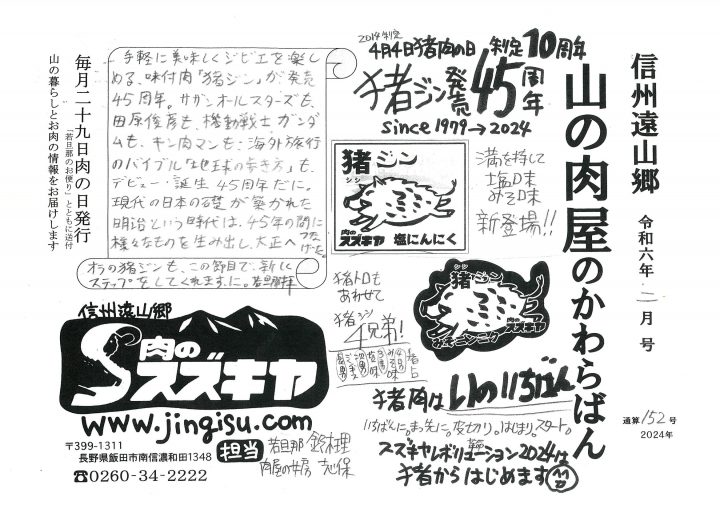 信州遠山郷
山の肉屋のかわらばん
令和六年 二月号
通算152号
2024年
2014制定
4月4日猪肉の日 制定10周年
猪ジン発売45周年
since 1979→2024
満を持して
塩味
みそ味
新登場!!
猪ジン
シシ
肉のスズキヤ 塩にんにく
猪ジン
シシ
肉のスズキヤ
みそニンニク
猪トロも
あわせて
猪ジン
4兄弟!
猪肉はいのいちばん
いちばんに。まっ先に。皮切り。はじまり。スタート。
スズキヤレボリューション2024は
猪者からはじめます
手軽に美味しくジビエを楽し
める、味付肉「猪ジン」が発売
45周年。サザンオールスターズも、
田原俊彦も、機動戦士ガンダ
ムも、キン肉マンも、海外旅行
のバイブル「地球の歩き方」も、
デビュー・誕生45周年だに。
現代の日本の礎が築かれた
明治という時代は、45年の間に
様々なものを生み出し、大正へつなげた。
オラの猪ジンも、この節目で、新しく
ステップをしてくれますに。若旦那拝
毎月二十九日肉の日発行
「若旦那のお便り」とともに送付
山の暮らしとお肉の情報をお届けします
信州遠山郷
肉のスズキヤ
www.jingisu.com
〒399-1311
長野県飯田市南信濃和田1348
☎0260-34-2222
担当
若旦那 鈴木理
肉屋の女房 志保